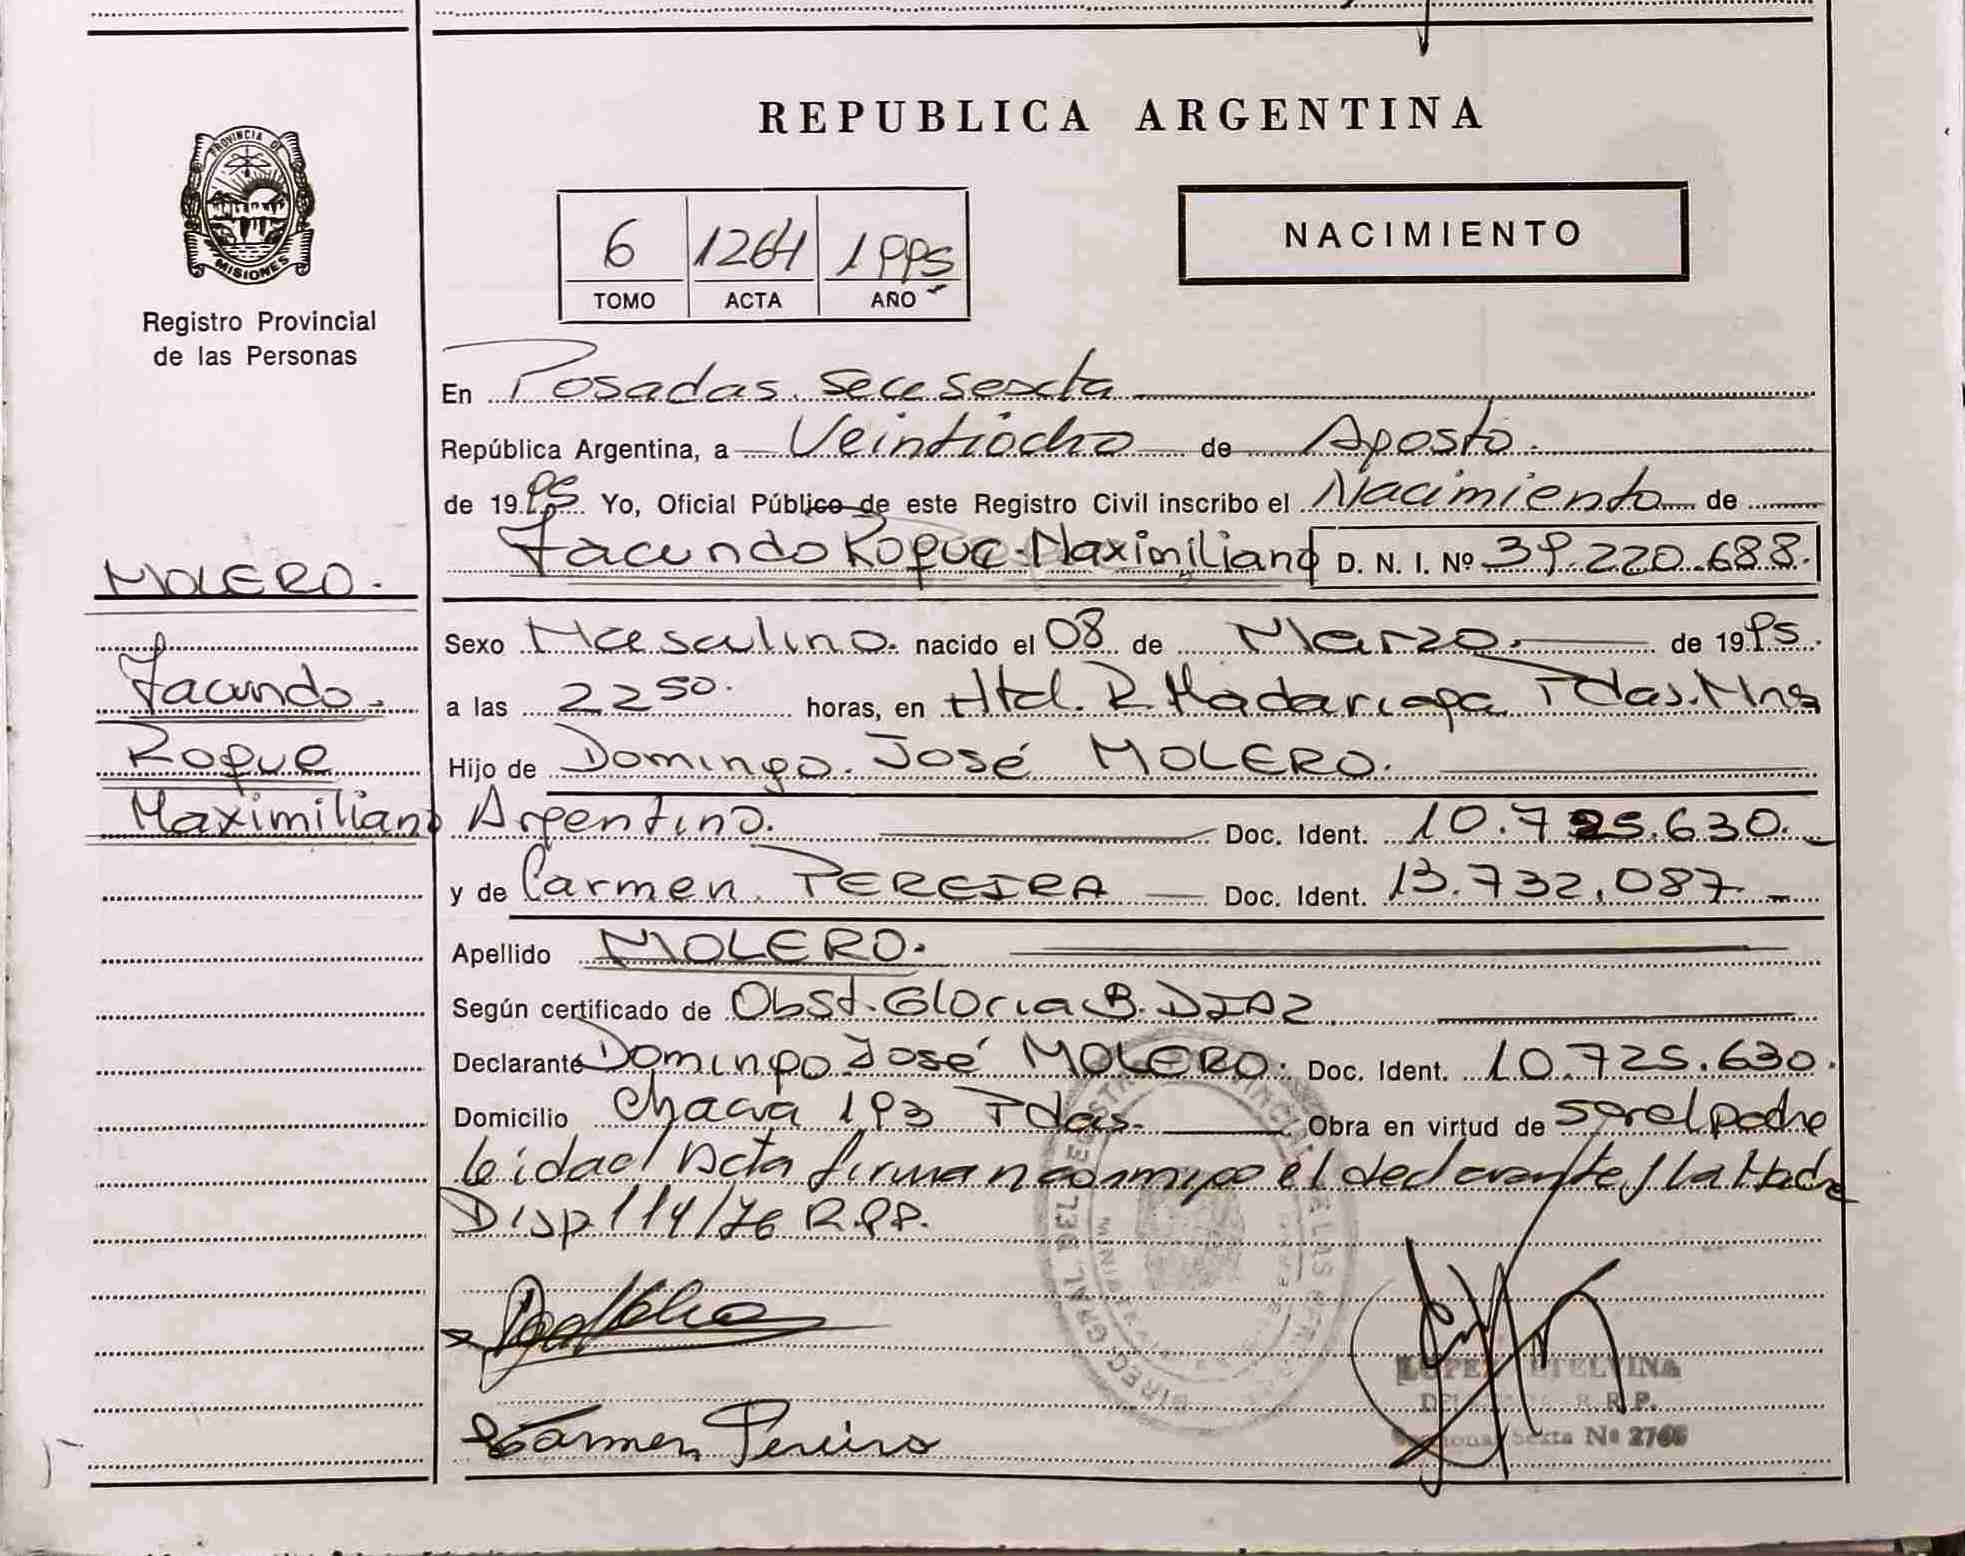 REPUBLICA ARGENTINA
PROVINCIA DE
MISIONES
Registro Provincial
de las Personas
6 1264 1995
TOMO ACTA AÑO
NACIMIENTO
En Posadas. Secc Sexta
República Argentina, a Veintiocho de Agosto.
de 1995 Yo, Oficial Público de este Registro Civil inscribo el Nacimiento de
Facundo Roque Maximiliano D. N. I. Nº 39.220.688.
MOLERO.
Facundo.
Roque
Maximiliano
Sexo Masculino. nacido el 08 de Marzo. de 1995.
a las 22 50. horas, en Htal. R. Madariaga Pdas. Mns
Hijo de Domingo. José MOLERO.
Argentino. Doc. Ident. 10.725.630.
y de Carmen. PEREIRA Doc. Ident. 13.732.087
Apellido MOLERO.
Según certificado de Obst. Gloria B. DIAZ
Declarante Domingo José MOLERO. Doc. Ident. 10.725.630.
Domicilio Chacra 193 Pdas. Obra en virtud de ser el padre
leida el Acta firman conmigo el declarante y la Madre
Disp. 114/76 R.P.P.
Carmen Pereira
LOPEZ ETELVINA
R.P.
Sexta Nº 2766